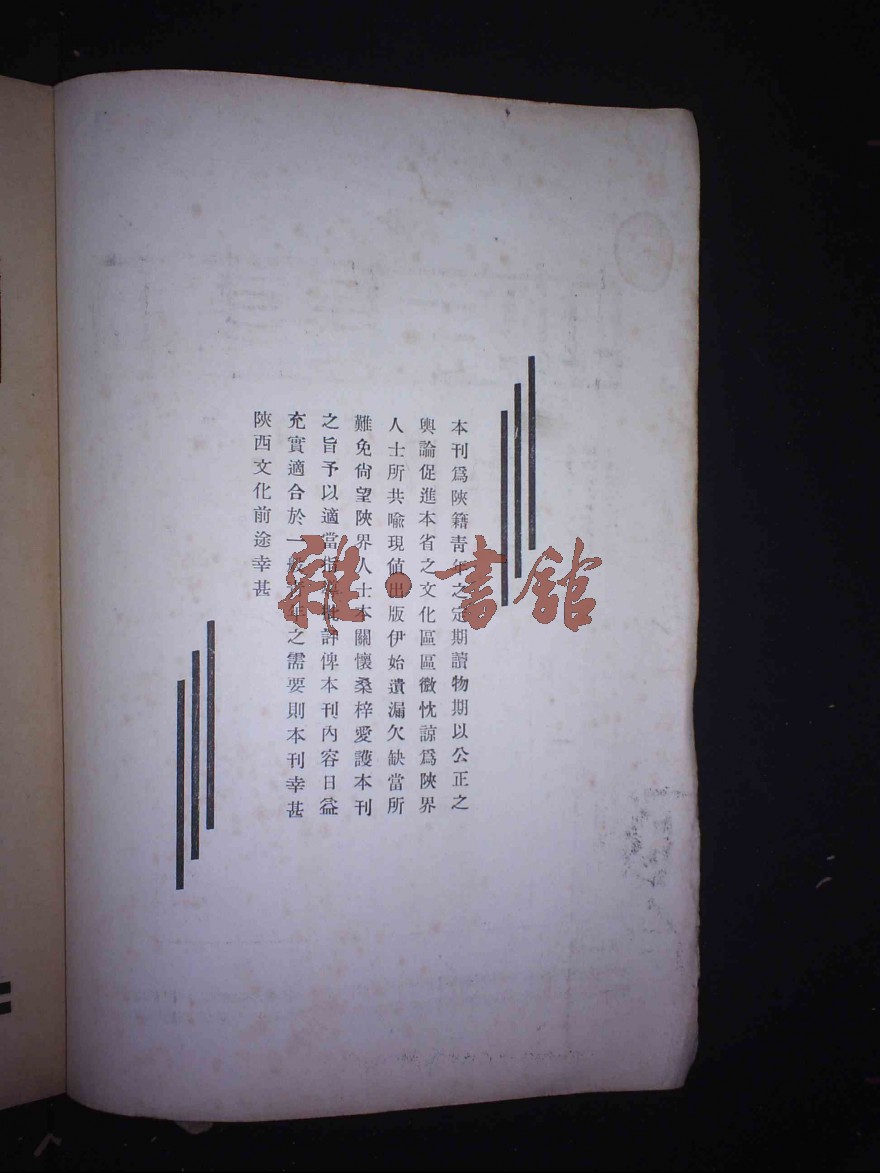 本刊爲陝籍靑年之定期讀物期以公正之
輿論促進本省之文化區區微忱諒爲陝界
人士所共喩現値出版伊始遺漏欠缺當所
難免尙望陝界人士本關懷桑梓愛護本刊
之旨予以適當指批評俾本刊內容日益
充實適合於一般靑年之需要則本刊幸甚
陝西文化前途幸甚
雜·書館